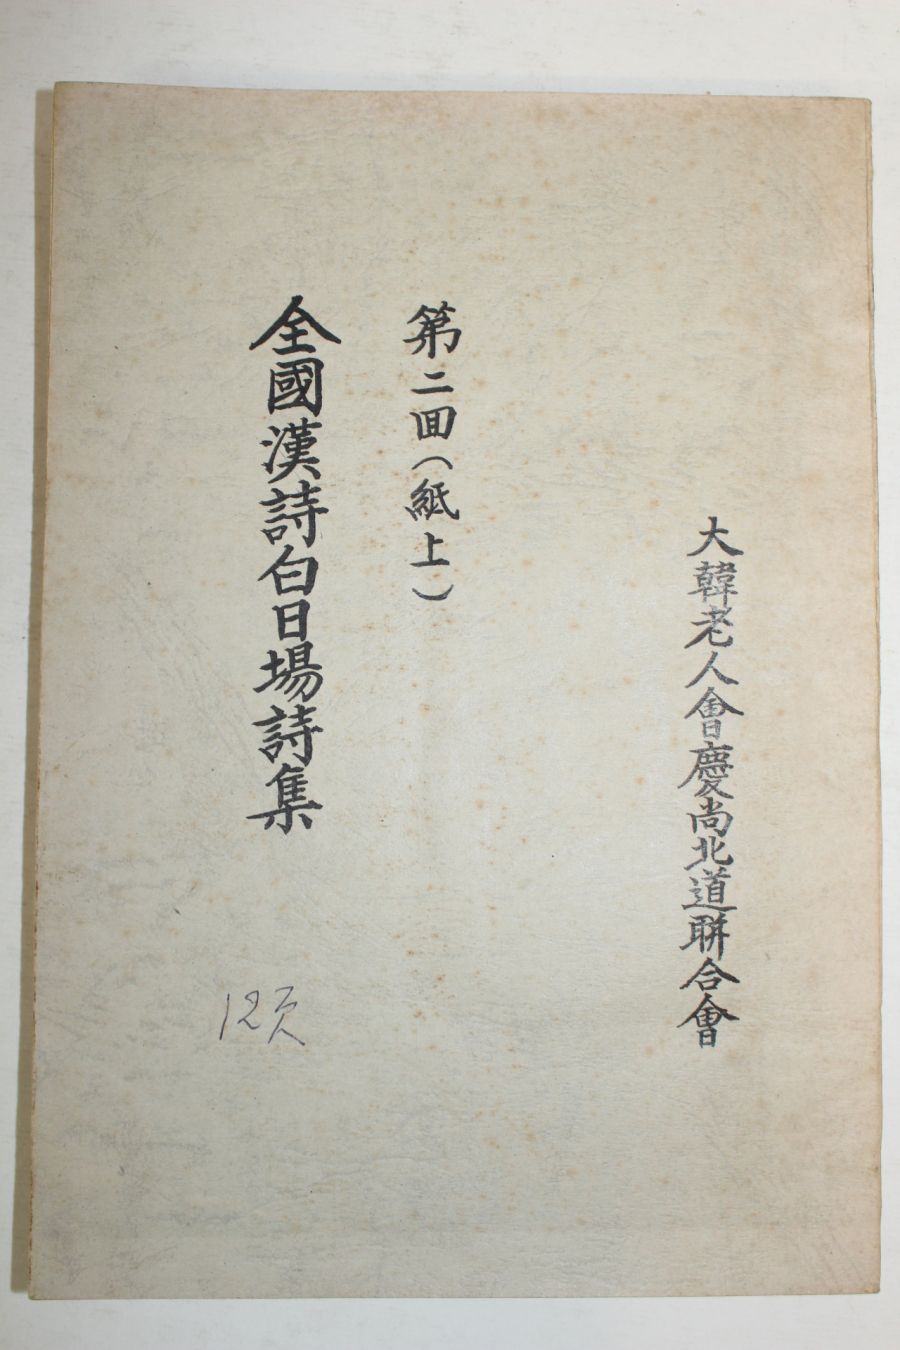 大韓老人會慶尚北道聯合會
第二回(紙上)
全國漢詩白日場詩集
12頁